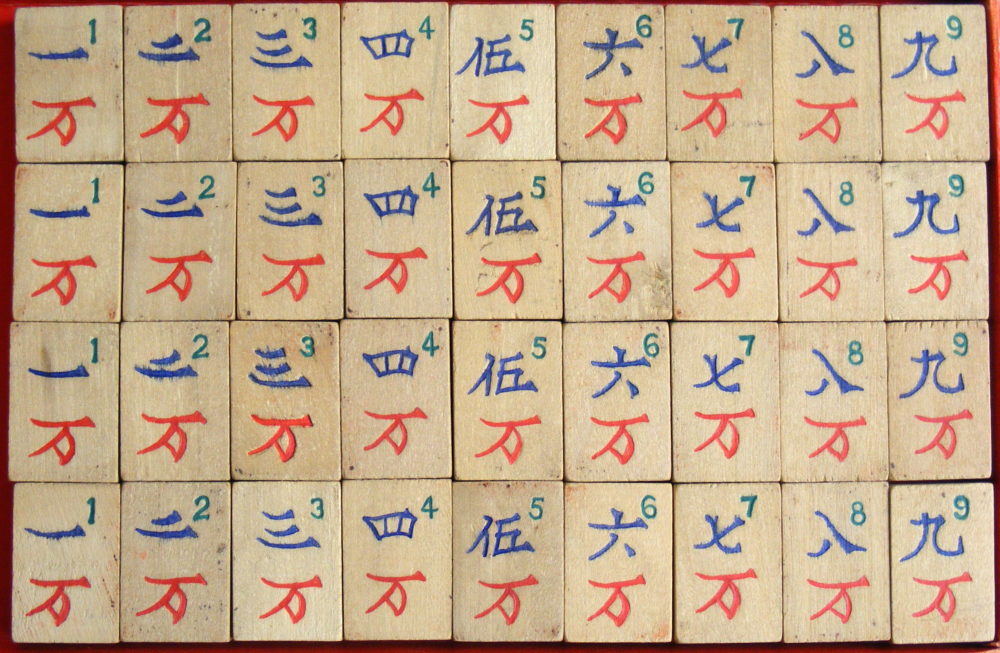 一1 二2 三3 四4 伍5 六6 七7 八8 九9
万 万 万 万 万 万 万 万 万
一1 二2 三3 四4 伍5 六6 七7 八8 九9
万 万 万 万 万 万 万 万 万
一1 二2 三3 四4 伍5 六6 七7 八8 九9
万 万 万 万 万 万 万 万 万
一1 二2 三3 四4 伍5 六6 七7 八8 九9
万 万 万 万 万 万 万 万 万